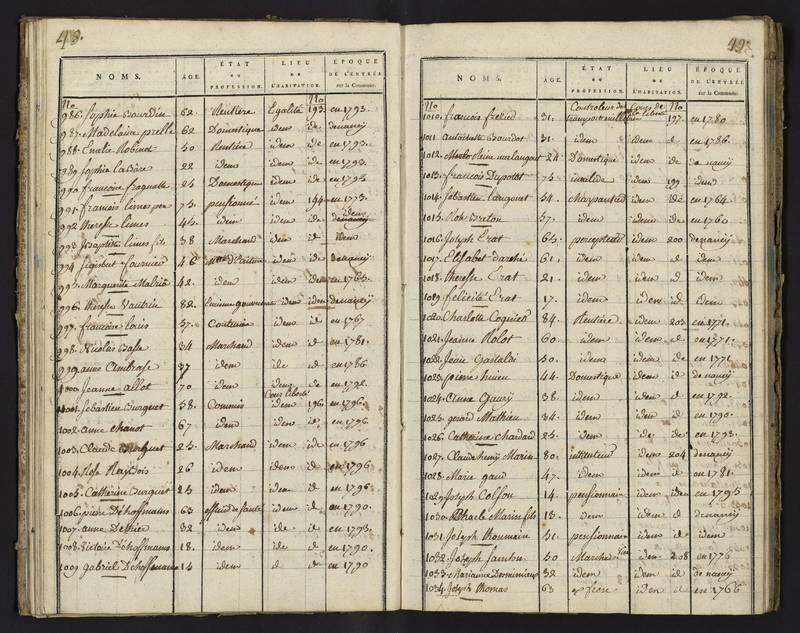 48.
NOMS. AGE. ÉTAT OU PROFESSION. LIEU DE L'HABITATION. ÉPOQUE DE L'ENTRÉE sur la Commune.
No No
986. Sophie Bourdin 62. Rentière Egalité 193. en 1793.
987. Madelaine 62 Domestique idem id denancy
988. Enalie Robinot 50 Rentière idem id en 1793.
989. Sophie 22 idem idem id en 1793.
990. francoise fraquette 25 Domestique idem id en 1793
991. francois limes pere 75. pensionné idem 194 en 1773.
992 Therese limes 45. idem idem id idem
993 Baptiste limes fils 38 Marchand idem id idem
994 fournier 46 idem id denancy
995. Marguerite 42. idem idem idem en 1765.
996. Therese Vautrin 82. idem idem denancy
997. francoise louis 57. Couturière idem id en 1767.
998. Nicolas Basse 34 Marchand idem id en 1781.
999. anne Ambroise 37 idem id id en 1786
1000. Jeanne allot 70 idem idem id en 1792.
Cour liberté
1001. Sebastien Burguet 58. Commis idem 196 en 1796.
1002. anne chanot 67 idem idem id en 1796
1003. Claude Burguet 25. Marchand idem id en 1796
1004. Rose 26 idem idem id en 1796
1005. Catherine Burguet 23 idem idem id en 1796.
1006. pierre Dehoffmanns 63 officier de santé idem id en 1790.
1007. anne 32 idem id id en 1773.
1008. Victoire Dehoffmanns 18. idem id id en 1790.
1009 Gabriel Dehoffmanns 14 idem id id en 1790
49.
NOMS. AGE. ÉTAT OU PROFESSION. LIEU DE L'HABITATION. ÉPOQUE DE L'ENTRÉE sur la Commune.
No Controleur des Cours de No
1010. francois 31. transport militaire la liberté 197. en 1780
1011 Antoinette Bourdot 31. idem idem id en 1786.
1012. 24 Domestique idem id de nancy
1013. francois Dupotot 75 invalide idem 199 idem
1014. Sebastien langonet 54. charpentier idem id en 1764.
1015. Rose Breton 57. idem idem id en 1760
1016. Joseph Erat 65. percepteur idem 200 denancy
1017. Elisabet 61. idem idem id idem
1018. Therese Erat 21. idem idem id idem
1019 felicité Erat 17. idem idem id idem
1020. Charlotte 84. Rentière idem 203 en 1771.
1021. Jeanne Rolot 60. idem idem id en 1771.
1022. Jean Gastaldi 50. idem idem id en 1771
1023. pierre 44. Domestique idem id de nancy
1024. Anne Gaury 38. idem idem id en 1792.
1025. gerard Mathieu 34. idem idem id en 1790.
1026. Catherine Chardard 25. idem id id en 1793.
1027. Claude Remy Marin 80. idem 204 denancy
1028. Marie gand 47. idem idem id en 1781.
1029. Joseph Colson 14. pensionnaire idem idem en 1795
1030. Charle Marin fils 13. idem idem id denancy
1031. Joseph Roumain 51. pensionnaire idem id idem
1032. Joseph 50 Marchand idem 208 en 1770
1033. Marianne 32 idem idem id de nancy
1034. Joseph Thomas 63 idem id en 1766